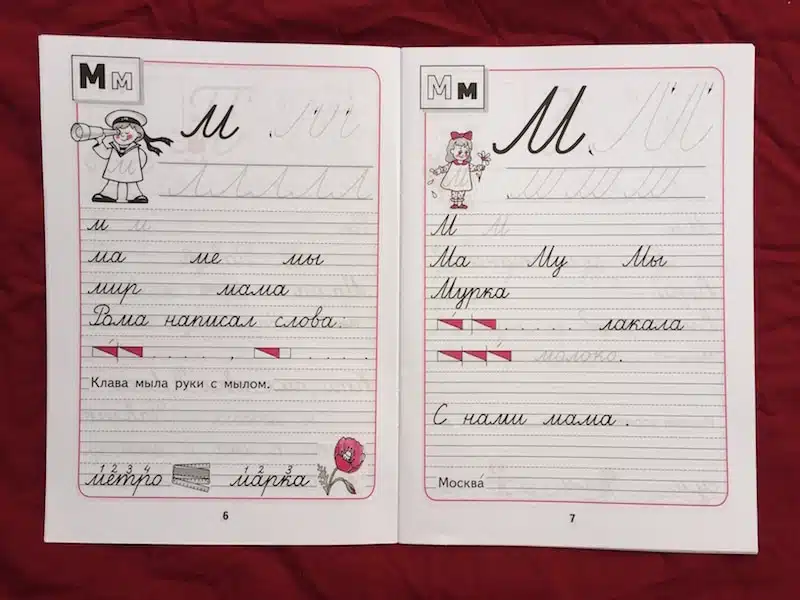 М м
м м м м
м м
ма ме мы
мир мама
Рома написал слова:
,
Клава мыла руки с мылом.
1 2 3 4 1 2 3
метро марка
6
М м
М М М
М М
Ма Му Мы
Мурка
лакала
молоко.
С нами мама.
Москва́
7